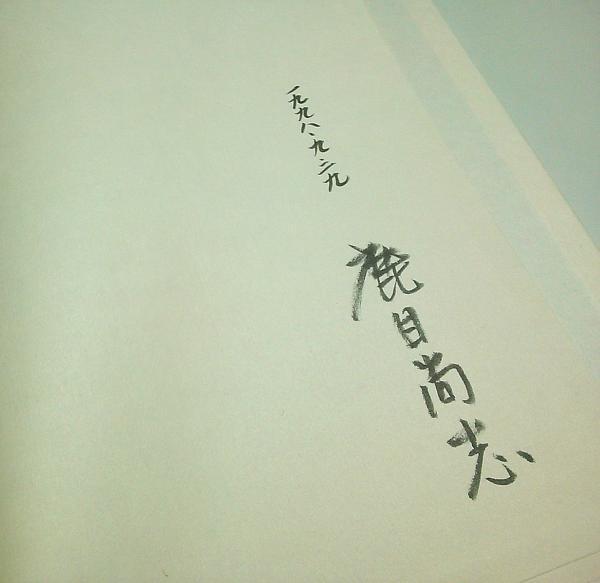 一九九八・九・二九
鹿目尚志